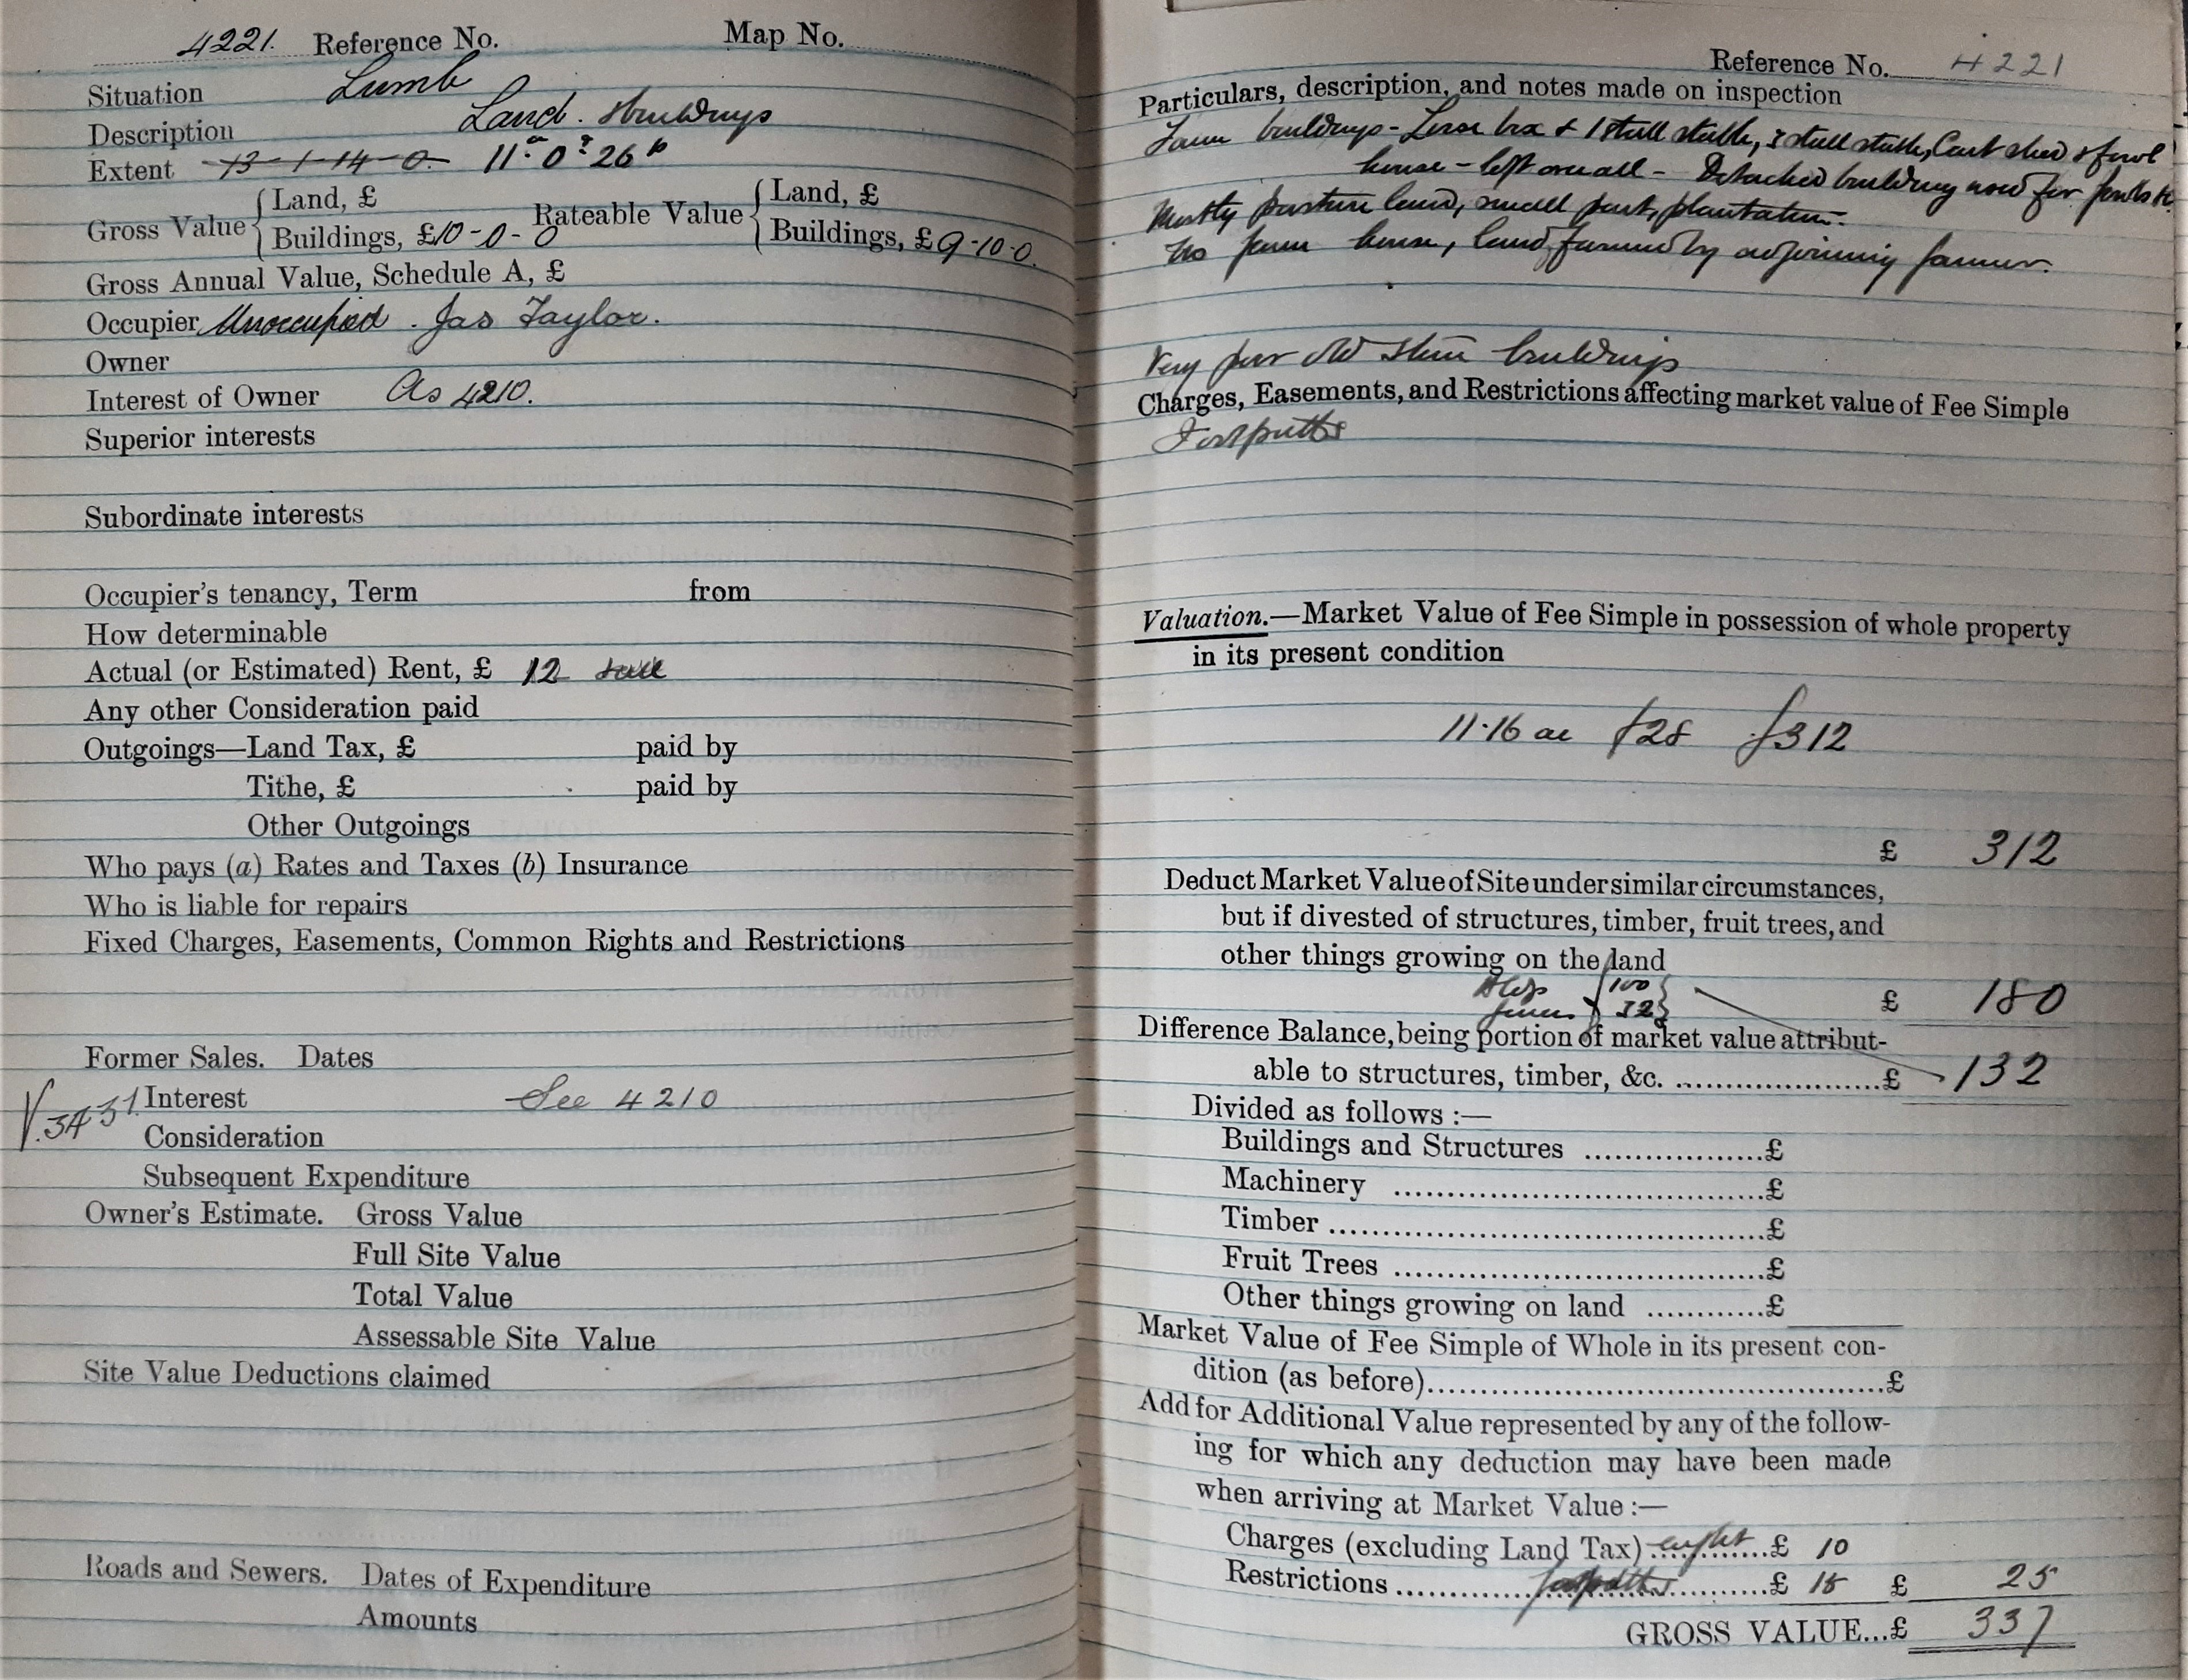 4221. Reference No. Map No.
Situation Lumb
Description Land. & buildings
Extent 13-1-14-0. 11a 0r 26p
Gross Value { Land, £ Rateable Value { Land, £
Buildings, £10-0-0 Buildings, £9-10-0.
Gross Annual Value, Schedule A, £
Occupier Unoccupied. Jas Taylor.
Owner
Interest of Owner As 4210.
Superior interests
Subordinate interests
Occupier's tenancy, Term from
How determinable
Actual (or Estimated) Rent, £ 12
Any other Consideration paid
Outgoings—Land Tax, £ paid by
Tithe, £ paid by
Other Outgoings
Who pays (a) Rates and Taxes (b) Insurance
Who is liable for repairs
Fixed Charges, Easements, Common Rights and Restrictions
Former Sales. Dates
Interest See 4210
Consideration
Subsequent Expenditure
Owner's Estimate. Gross Value
Full Site Value
Total Value
Assessable Site Value
Site Value Deductions claimed
Roads and Sewers. Dates of Expenditure
Amounts
Reference No. 4221
Particulars, description, and notes made on inspection
Farm buildings - Loose box & 1 stall stable, 3 stall stable, Cart shed & fowl
house - loft over all - Detached building now for fowls &c.
Mostly pasture land, small part, plantation.
No farm house, land farmed by adjoining farmer.
Very poor old stone buildings
Charges, Easements, and Restrictions affecting market value of Fee Simple
Footpaths
Valuation.—Market Value of Fee Simple in possession of whole property
in its present condition
11.16 ac £28 £312
£ 312
Deduct Market Value of Site under similar circumstances,
but if divested of structures, timber, fruit trees, and
other things growing on the land
Bldgs £100
fences 32 } £ 180
Difference Balance, being portion of market value attribut-
able to structures, timber, &c. ....................£ 132
Divided as follows :—
Buildings and Structures ..................£
Machinery .....................................£
Timber ...........................................£
Fruit Trees .....................................£
Other things growing on land ............£
Market Value of Fee Simple of Whole in its present con-
dition (as before).............................................£
Add for Additional Value represented by any of the follow-
ing for which any deduction may have been made
when arriving at Market Value :—
Charges (excluding Land Tax) ............£ 10
Restrictions ........footpaths........£ 15 £ 25
GROSS VALUE...£ 337